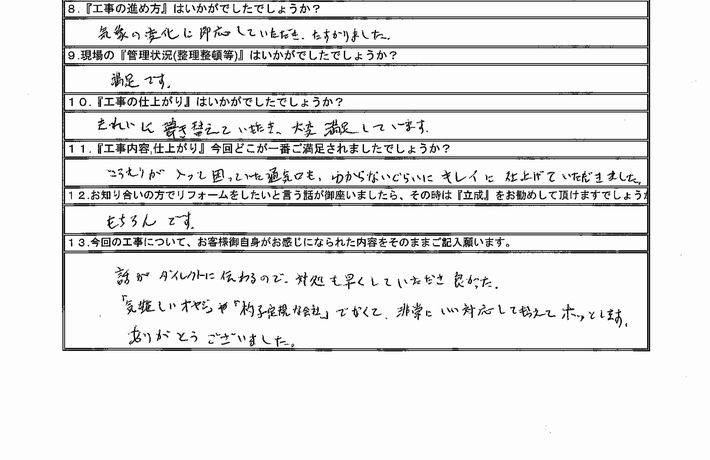 8.『工事の進め方』はいかがでしたでしょうか？
気象の変化に即応していただき、たすかりました。
9.現場の『管理状況(整理整頓等)』はいかがでしたでしょうか？
満足です。
10.『工事の仕上がり』はいかがでしたでしょうか？
きれいに葺き替えていただき、大変満足しています。
11.『工事内容,仕上がり』今回どこが一番ご満足されましたでしょうか？
こうもりが入って困っていた通気口も、わからないぐらいにキレイに仕上げていただきました。
12.お知り合いの方でリフォームをしたいと言う話が御座いましたら、その時は『立成』をお勧めして頂けますでしょうか
もちろんです。
13.今回の工事について、お客様御自身がお感じになられた内容をそのままご記入願います。
話がダイレクトに伝わるので、対処も早くしていただき良かった。
「気難しいオヤジ」や「杓子定規な会社」でなくて、非常にいい対応してもらえてホッとします。
ありがとうございました。